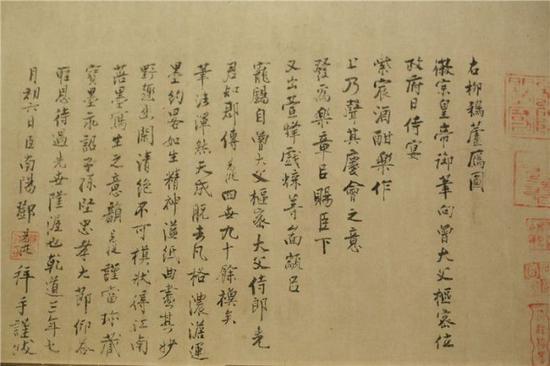 右柳鵶蘆鴈圖
徽宗皇帝御筆向曾大父樞密位
政府日侍宴
紫宸酒酣樂作
上乃聲其慶會之意
發爲樂章臣賜臣下
又出萱 戲 等
寵錫自曾大父樞密大父侍郎先
君知郡傳 四世九十餘禩矣
筆法渾然天成脫去凡格濃淡運
墨約畧如生精神溢紙曲盡其妙
野趣幽閑清絕不可模狀得江南
落墨寫生之意韻 謹當珍藏
寶墨永詔子孫堅忠孝大節仰答
聖恩待遇先世隆渥也乾道三年七
月初六日臣南陽鄧 拜手謹跋